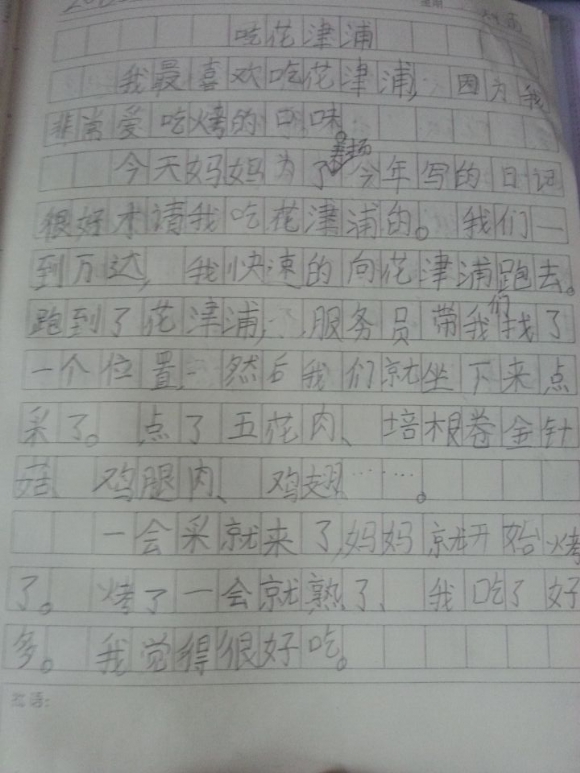 吃花津浦
我最喜欢吃花津浦,因为我
非常爱吃烤的口味。
表扬
今天妈妈为了今年写的日记
很好才请我吃花津浦的。我们一
到万达,我快速的向花津浦跑去。
跑到了花津浦,服务员带我们找了
一个位置,然后我们就坐下来点
采了。点了五花肉、培根卷金针
菇、鸡腿肉、鸡翅……。
一会采就来了,妈妈就开始烤
了。烤了一会就熟了,我吃了好
多。我觉得很好吃。
批语: